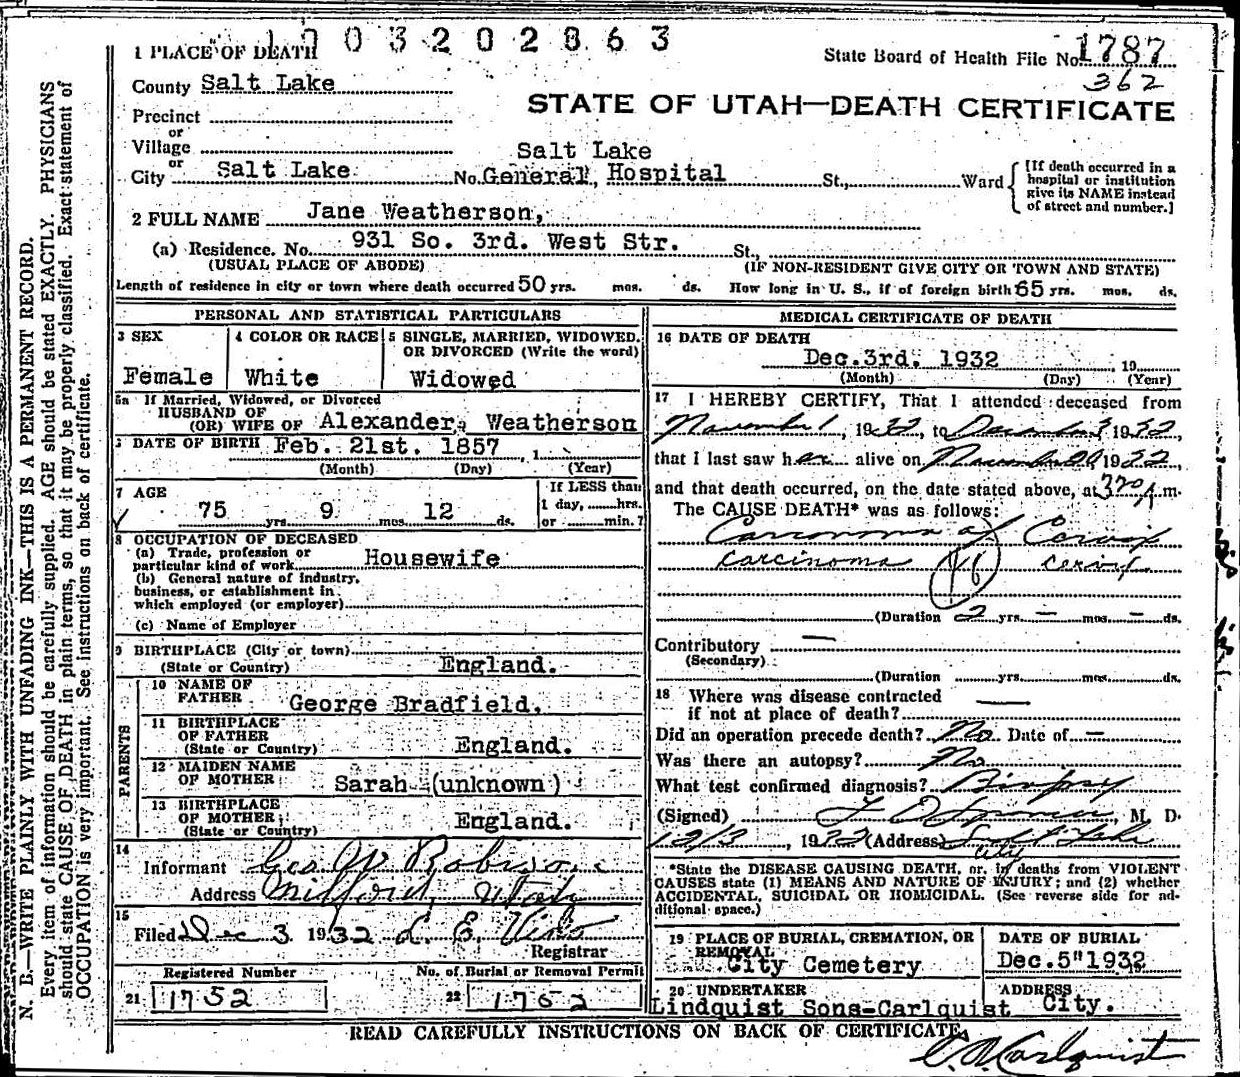 1003202863
1 PLACE OF DEATH
State Board of Health File No. 1787
362
County Salt Lake
STATE OF UTAH—DEATH CERTIFICATE
Precinct
or
Village
or
City Salt Lake No. Salt Lake General, Hospital St., Ward
[If death occurred in a
hospital or institution
give its NAME instead
of street and number.]
2 FULL NAME Jane Weatherson,
(a) Residence. No. 931 So. 3rd. West Str. St.,
(USUAL PLACE OF ABODE) (IF NON-RESIDENT GIVE CITY OR TOWN AND STATE)
Length of residence in city or town where death occurred 50 yrs. mos. ds. How long in U. S., if of foreign birth 65 yrs. mos. ds.
PERSONAL AND STATISTICAL PARTICULARS
3 SEX
Female
4 COLOR OR RACE
White
5 SINGLE, MARRIED, WIDOWED,
OR DIVORCED (Write the word)
Widowed
5a If Married, Widowed, or Divorced
HUSBAND OF
(OR) WIFE OF Alexander, Weatherson
DATE OF BIRTH Feb. 21st. 1857 , 1
(Month) (Day) (Year)
7 AGE
75 yrs. 9 mos. 12 ds.
If LESS than
1 day, hrs.
or min.?
8 OCCUPATION OF DECEASED
(a) Trade, profession or
particular kind of work Housewife
(b) General nature of industry,
business, or establishment in
which employed (or employer)
(c) Name of Employer
9 BIRTHPLACE (City or town)
(State or Country) England.
PARENTS
10 NAME OF
FATHER George Bradfield.
11 BIRTHPLACE
OF FATHER
(State or Country) England.
12 MAIDEN NAME
OF MOTHER Sarah (unknown)
13 BIRTHPLACE
OF MOTHER
(State or Country) England.
14
Informant Geo W Robison
Address Milford, Utah
15
Filed Dec 3 1932 L. E. Viko
Registrar
Registered Number
21 1752
No. of Burial or Removal Permit
22 1752
MEDICAL CERTIFICATE OF DEATH
16 DATE OF DEATH
Dec. 3rd. 1932 , 19
(Month) (Day) (Year)
17 I HEREBY CERTIFY, That I attended deceased from
November 1, 1932, to December 3 1932,
that I last saw her alive on November 1932,
and that death occurred, on the date stated above, at 3 20 m.
The CAUSE DEATH* was as follows:
Carcinoma of Cervix
carcinoma 48 cervix
(Duration 2 yrs. — mos. — ds.
Contributory —
(Secondary)
(Duration yrs. mos. ds.
18 Where was disease contracted
if not at place of death? —
Did an operation precede death? No Date of —
Was there an autopsy? No
What test confirmed diagnosis? Biopsy
(Signed) M. D.
12/3, 1932 (Address) Salt Lake
City
*State the DISEASE CAUSING DEATH, or, in deaths from VIOLENT
CAUSES state (1) MEANS AND NATURE OF INJURY; and (2) whether
ACCIDENTAL, SUICIDAL OR HOMICIDAL. (See reverse side for ad-
ditional space.)
19 PLACE OF BURIAL, CREMATION, OR
REMOVAL
City Cemetery
DATE OF BURIAL
Dec. 5" 1932
20 UNDERTAKER
Lindquist Sons-Carlquist
ADDRESS
City.
READ CAREFULLY INSTRUCTIONS ON BACK OF CERTIFICATE
Carlquist
N. B.—WRITE PLAINLY WITH UNFADING INK—THIS IS A PERMANENT RECORD.
Every item of information should be carefully supplied. AGE should be stated EXACTLY. PHYSICIANS
should state CAUSE OF DEATH in plain terms, so that it may be properly classified. Exact statement of
OCCUPATION is very important. See instructions on back of certificate.